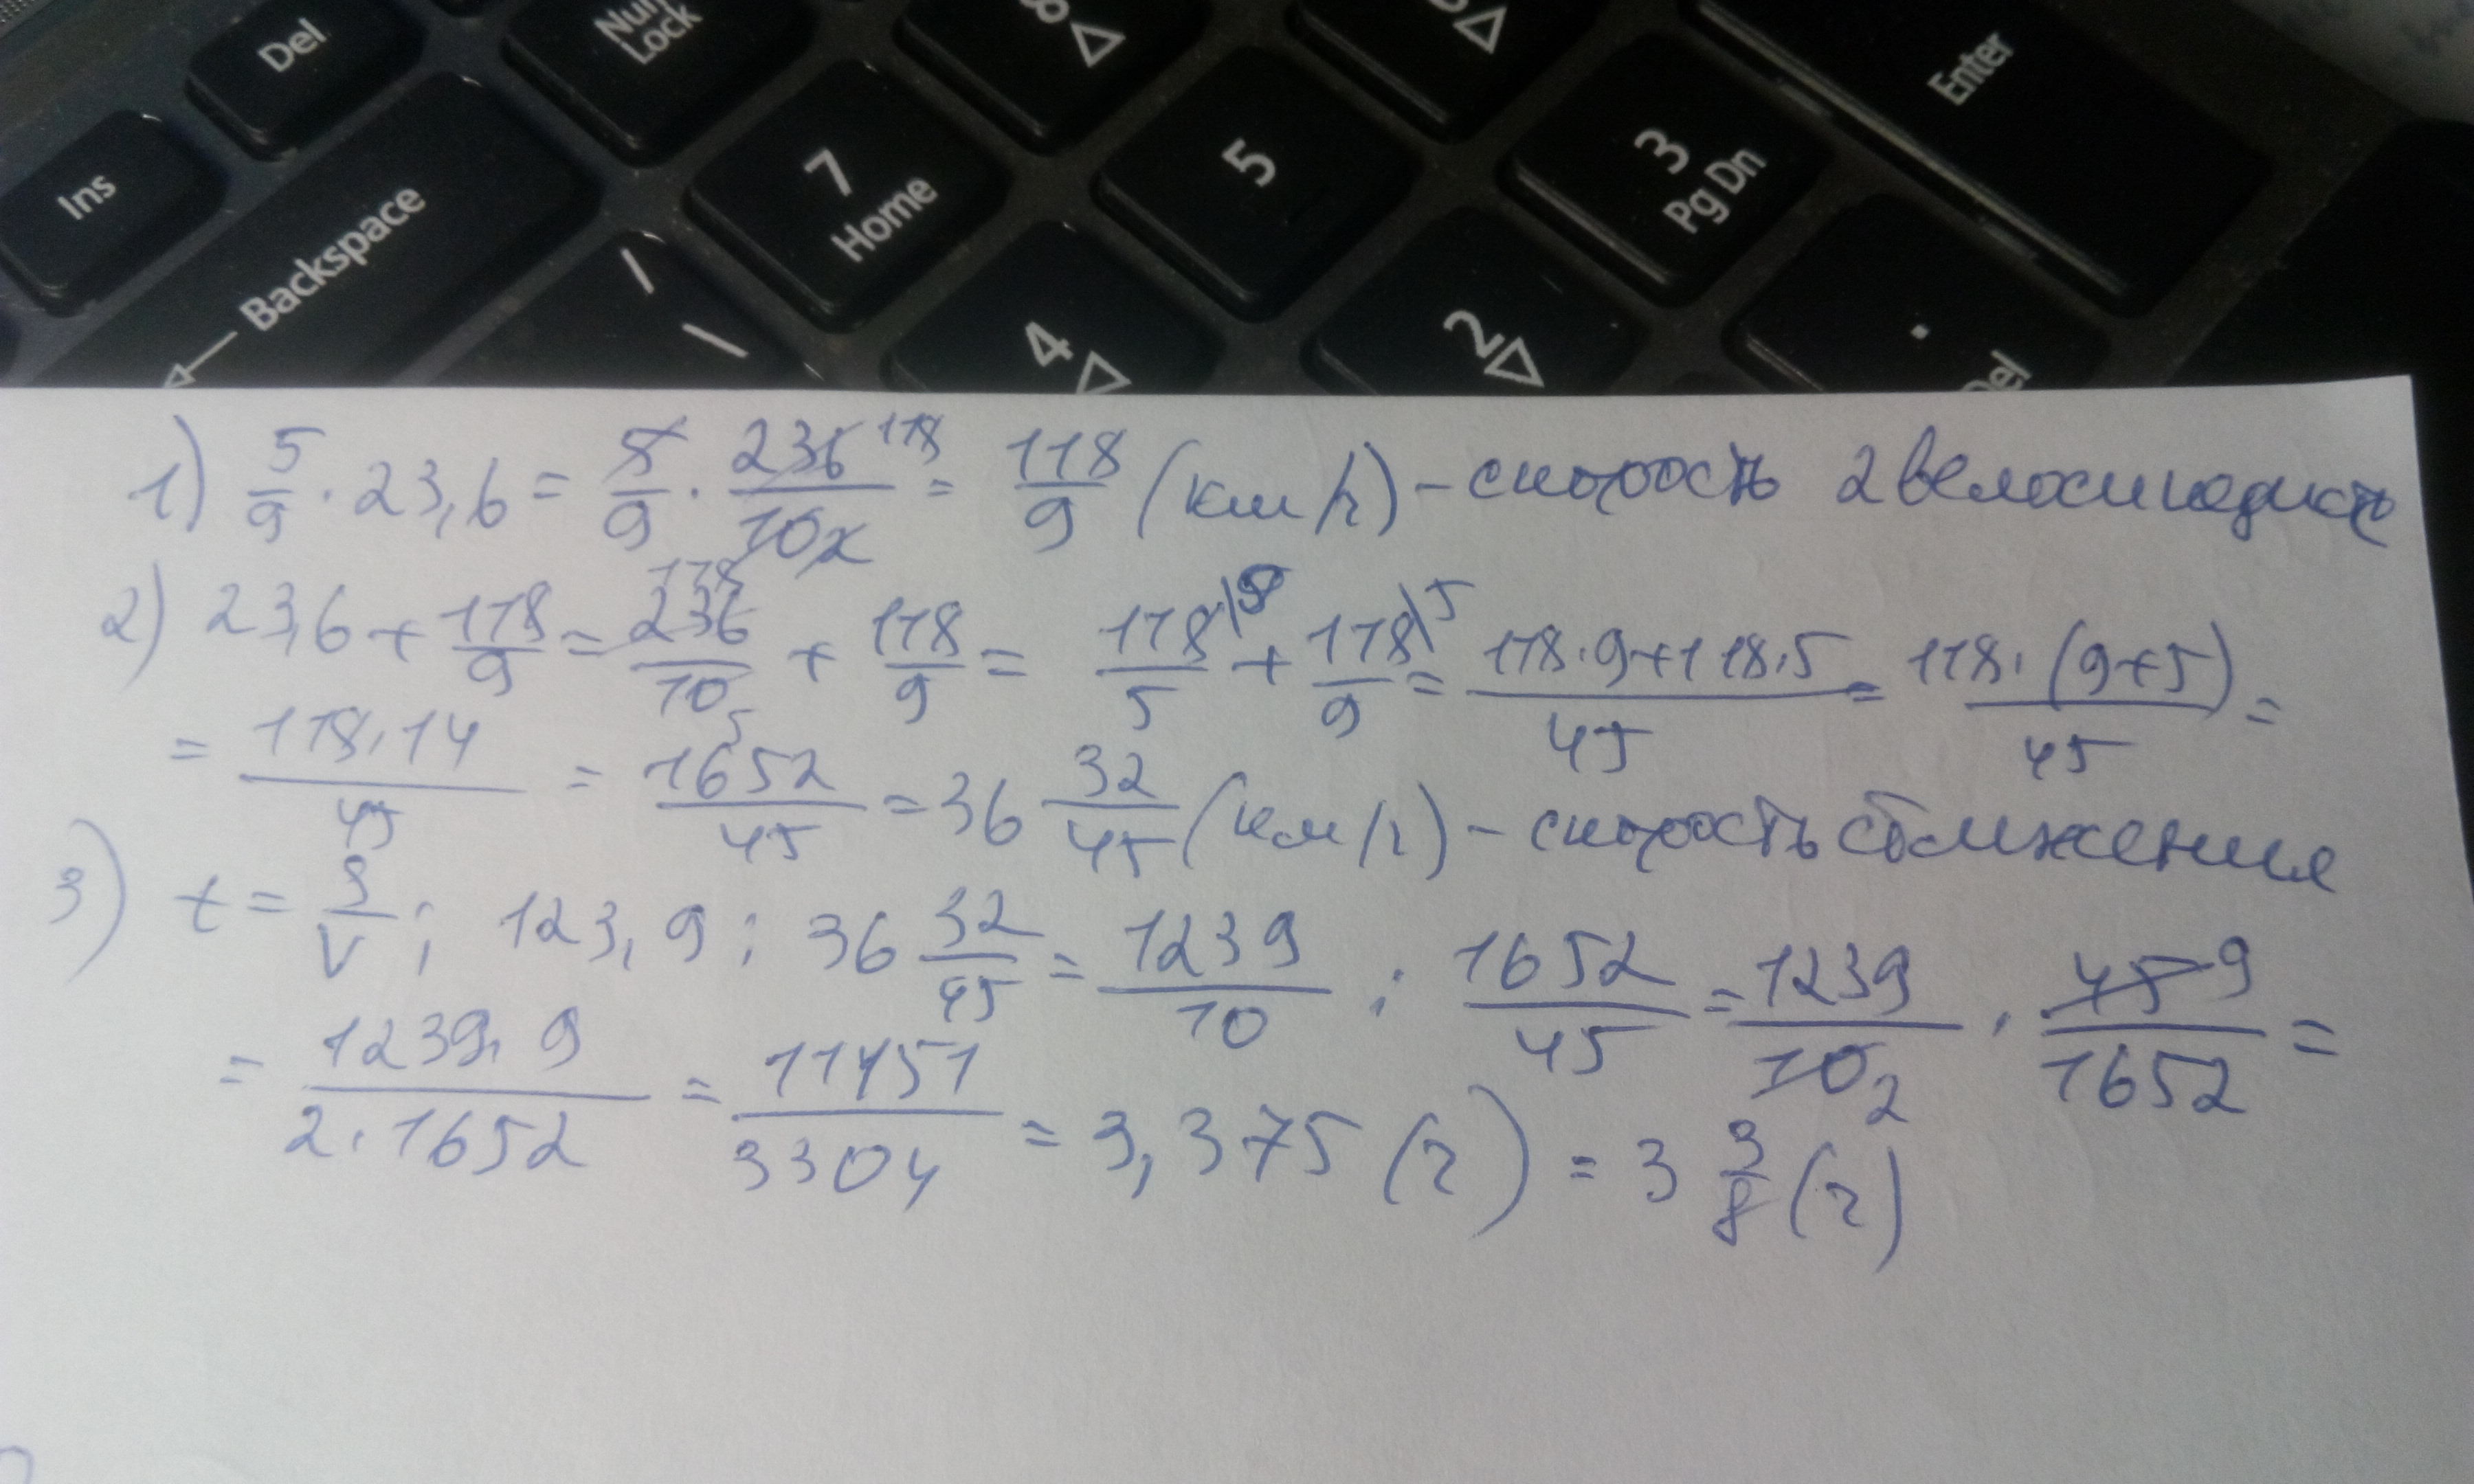 Del
Num Lock
8
6
Enter
Ins
Backspace
7 Home
5
3 Pg Dn
/
\
4
2
. Del
1) 5/9 · 23,6 = 5/9 · 236 118/10 2 = 118/9 (км/ч) - скорость 2 велосипедиста
2) 23,6 + 118/9 = 118 236/10 5 + 118/9 = 118\9/5 + 118\5/9 = 118·9+118·5/45 = 118·(9+5)/45 =
= 118·14/45 = 1652/45 = 36 32/45 (км/ч) - скорость сближения
3) t = S/V; 123,9 : 36 32/45 = 1239/10 : 1652/45 = 1239/10 2 · 45 9/1652 =
= 1239·9/2·1652 = 11151/3304 = 3,375 (ч) = 3 3/8 (ч)